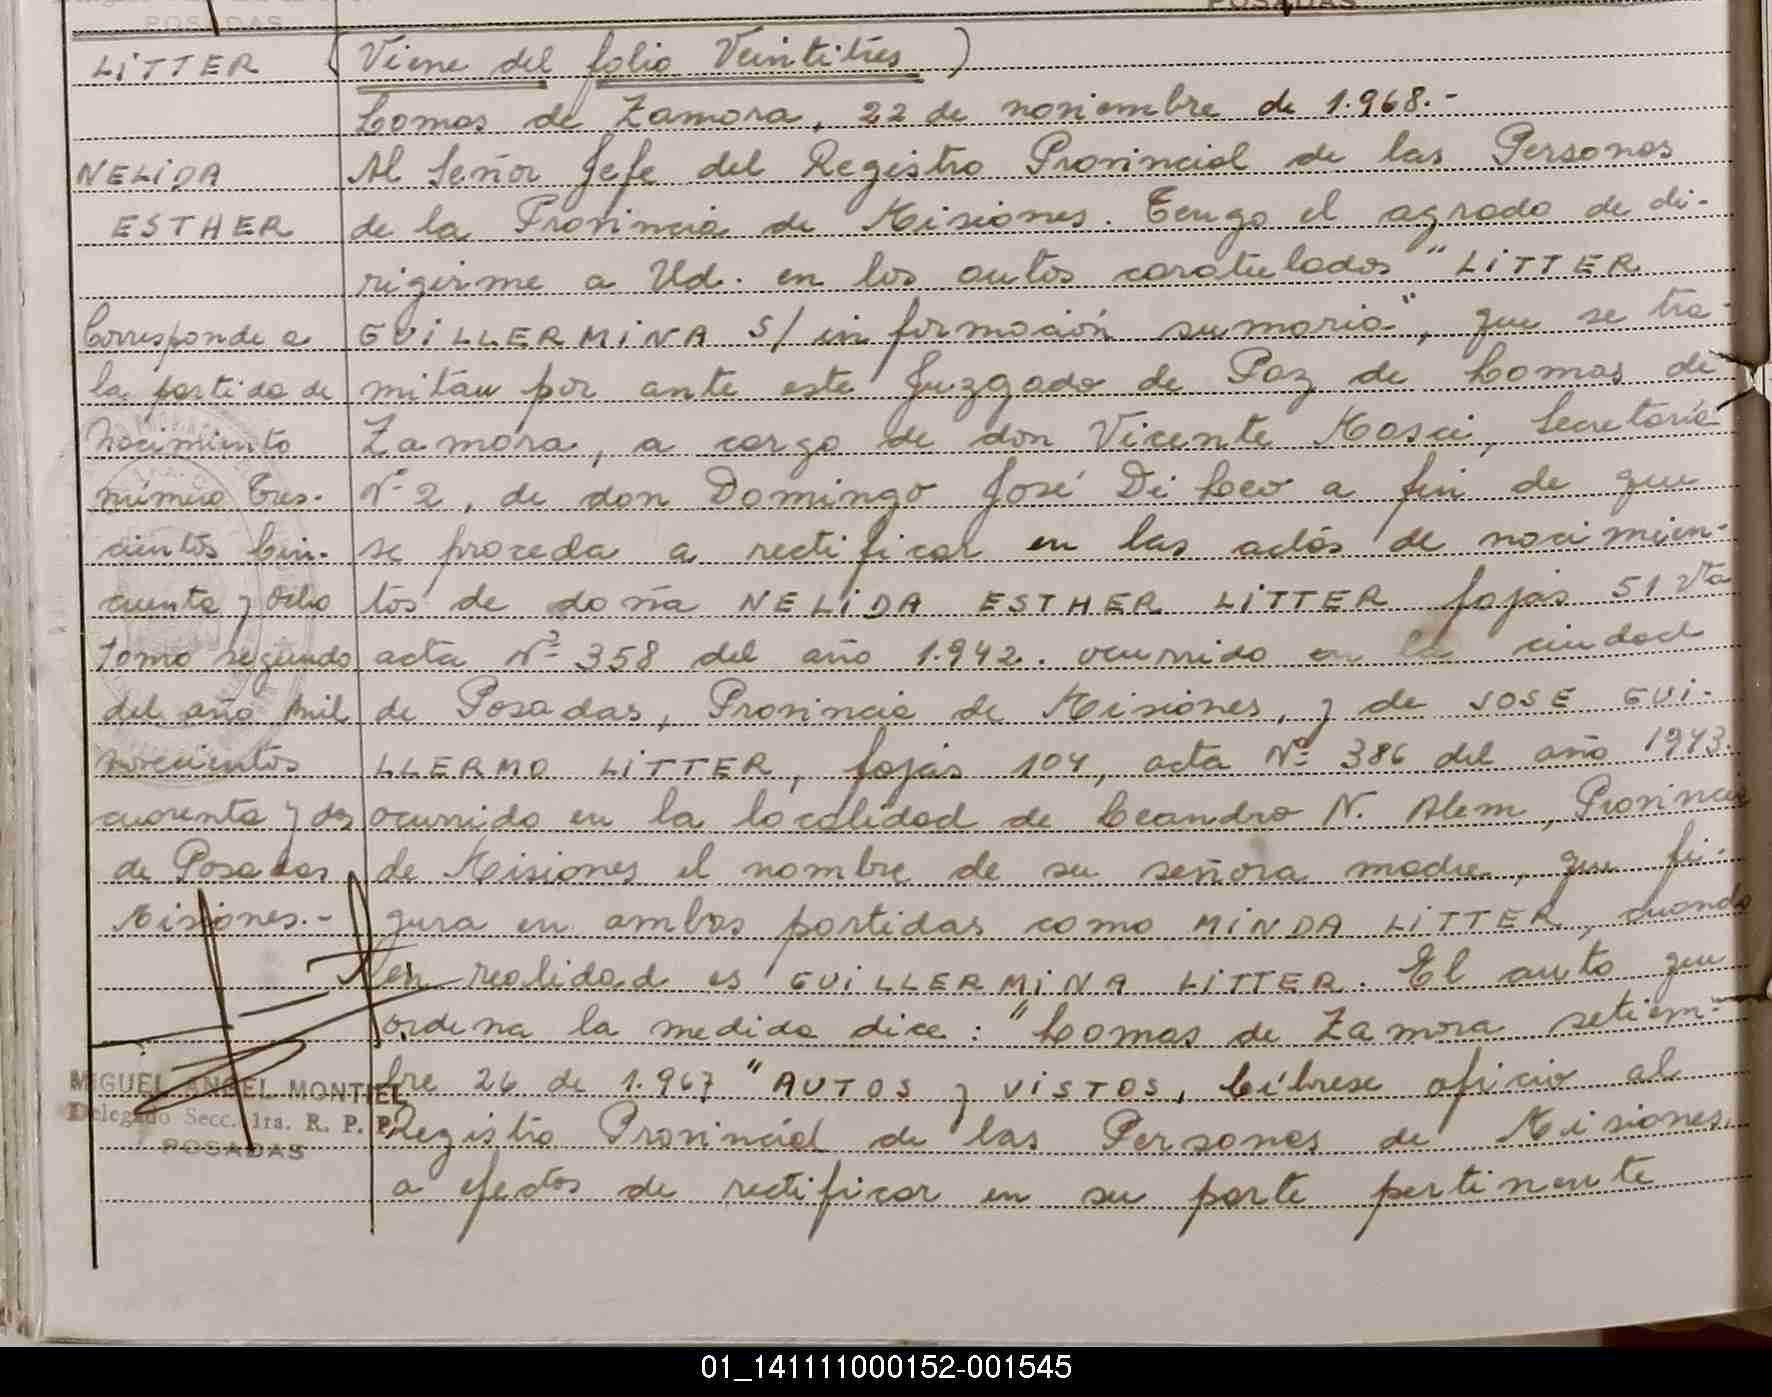 POSADAS
POSADAS
LITTER
NELIDA
ESTHER
Corresponde a
la partida de
Nacimiento
número Tres-
cientos Cin-
cuenta y Ocho
Tomo segundo
del año Mil
novecientos
cuarenta y dos
de Posadas
Misiones.-
MIGUEL ANGEL MONTIEL
Delegado Secc. 1ra. R. P. P.
POSADAS
( Viene del folio Veintitrés )
Lomas de Zamora, 22 de noviembre de 1.968.-
Al Señor Jefe del Registro Provincial de las Personas
de la Provincia de Misiones. Tengo el agrado de di-
rigirme a Ud. en los autos caratulados "LITTER
GUILLERMINA S/ información sumaria", que se tra-
mitan por ante este Juzgado de Paz de Lomas de
Zamora, a cargo de don Vicente Mosci, Secretaría
Nº 2, de don Domingo José Di Leo a fin de que
se proceda a rectificar en las actas de nacimien-
tos de doña NELIDA ESTHER LITTER fojas 51 vta
acta Nº 358 del año 1.942. ocurrido en la ciudad
de Posadas, Provincia de Misiones, y de JOSE GUI-
LLERMO LITTER, fojas 104, acta Nº 386 del año 1943.
ocurrido en la localidad de Leandro N. Alem, Provincia
de Misiones el nombre de su señora madre, que fi-
gura en ambas partidas como MINDA LITTER, cuando
en realidad es GUILLERMINA LITTER. El auto que
ordena la medida dice: "Lomas de Zamora setiem-
bre 26 de 1.967 "AUTOS y VISTOS, Líbrese oficio al
Registro Provincial de las Personas de Misiones,
a efectos de rectificar en su parte pertinente
01_141111000152-001545